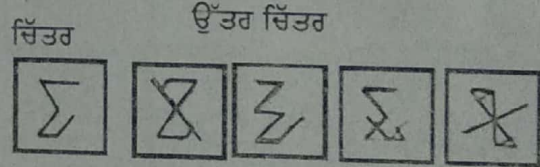 ਚਿੱਤਰ
ਉੱਤਰ ਚਿੱਤਰ